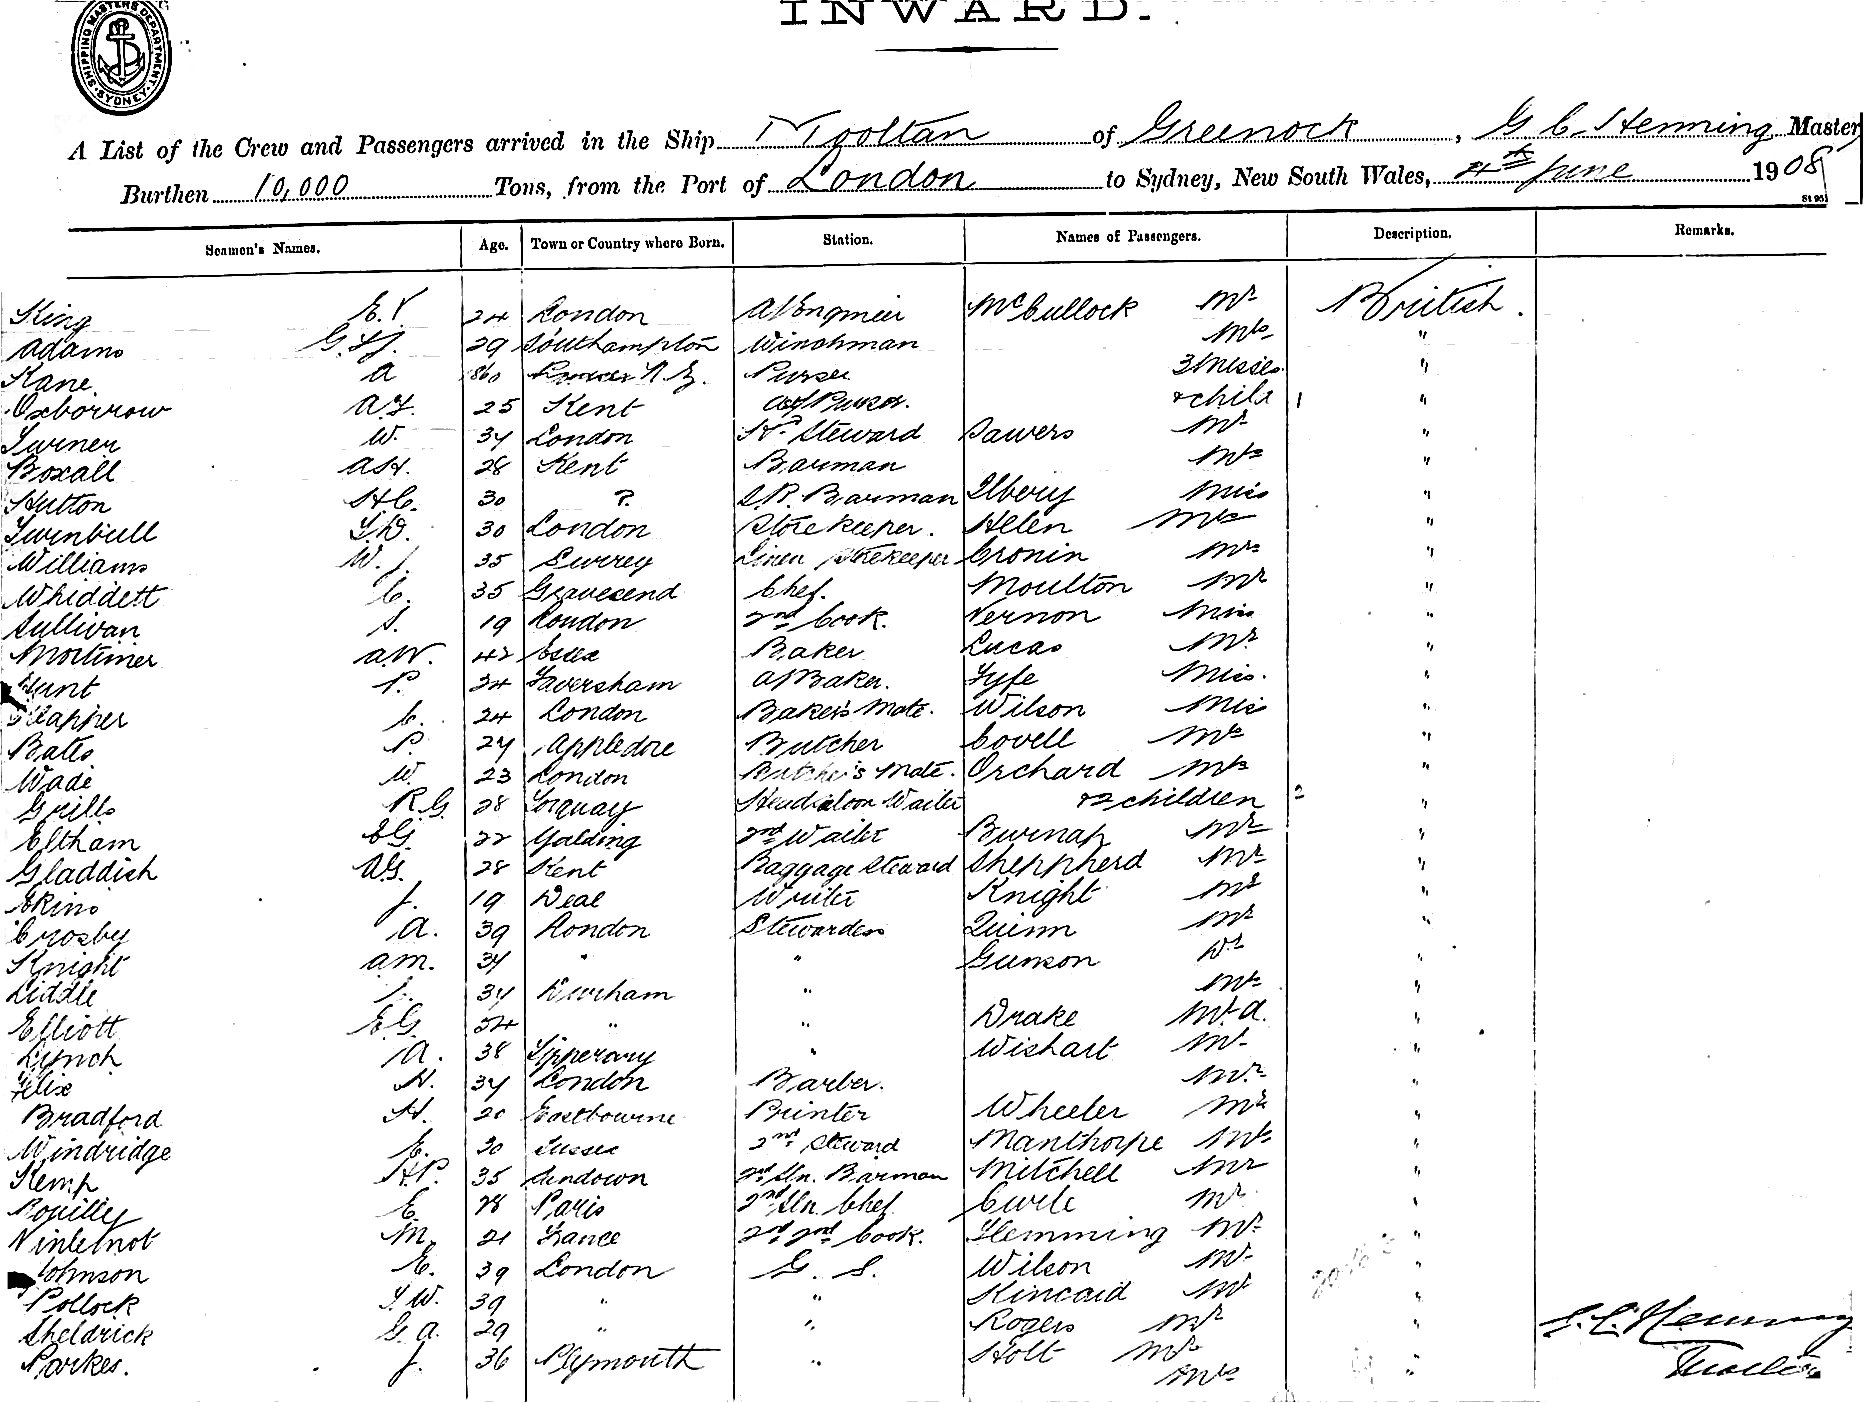 SHIPPING MASTERS DEPARTMENT. SYDNEY
INWARD.
A List of the Crew and Passengers arrived in the Ship Mooltan of Greenock, G C Henning Master
Burthen 10,000 Tons, from the Port of London to Sydney, New South Wales, 4th June 1908
Seamen's Names. Age. Town or Country where Born. Station. Names of Passengers. Description. Remarks.
King 24 London McCullock Mr British.
Adams 29 Southampton Winchman Mrs "
Kane A Purser 3 Misses "
Oxborrow 25 Kent Asst Purser. & child 1 "
Turner W. 34 London Steward Sawers Mr "
Boxall A.H. 28 Kent Barman Mrs "
Hutton H.C. 30 ? S.R. Barman Miss "
Turnbull 30 London Storekeeper. Helen Mrs "
Williams W. J. 35 Surrey Linen Storekeeper Cronin "
Whiddett C. 35 Gravesend Chef. Moulton Mr "
Sullivan S. 19 London 2nd Cook. Vernon Miss "
Mortimer A.W. 42 Baker Lucas Mr "
Hunt P. 24 Faversham A/Baker. Fyfe Miss. "
C. 24 London Baker's Mate. Wilson Miss "
Bates P. 24 Appledore Butcher Covell "
Wade W. 23 London Butcher's Mate. Orchard Mrs "
Grills R.G. 28 Torquay Head Saloon Waiter & 2 children 2 "
Eltham E.G. 22 Yalding 2nd Waiter Burnap Mr "
Gladdish A.G. 28 Kent Baggage Steward Sheppherd Mr "
Ekins J. 19 Deal Writer Knight Mr "
Crosby A. 39 London Stewardess Quinn Mr "
Knight A.M. 34 " " Gunson Dr "
Liddle 34 Durham " Mrs "
Elliott E.G. " " Drake Mr A. "
Lynch A. 38 Tipperary " Wishart Mr "
Felix H. 34 London Barber. "
Bradford H. 20 Eastbourne Printer Wheeler Mr "
Windridge E. 30 Sussex 2nd Steward Manthorpe "
Kemp H.P. 35 Sandown 2nd Sln. Barman Mitchell Mr "
Rouilly E. 28 Paris 2nd Sln. Chef Curle Mr "
M. 21 France 2nd 2nd Cook. Flemming Mr "
Johnson E. 39 London G. S. Wilson Mr "
Pollock 39 " " Kincaid Mr "
Sheldrick G.A. 29 " " Rogers Mr "
Parkes. J. 36 Plymouth " Holt Mr "
Mrs
G.C. Henning
Master